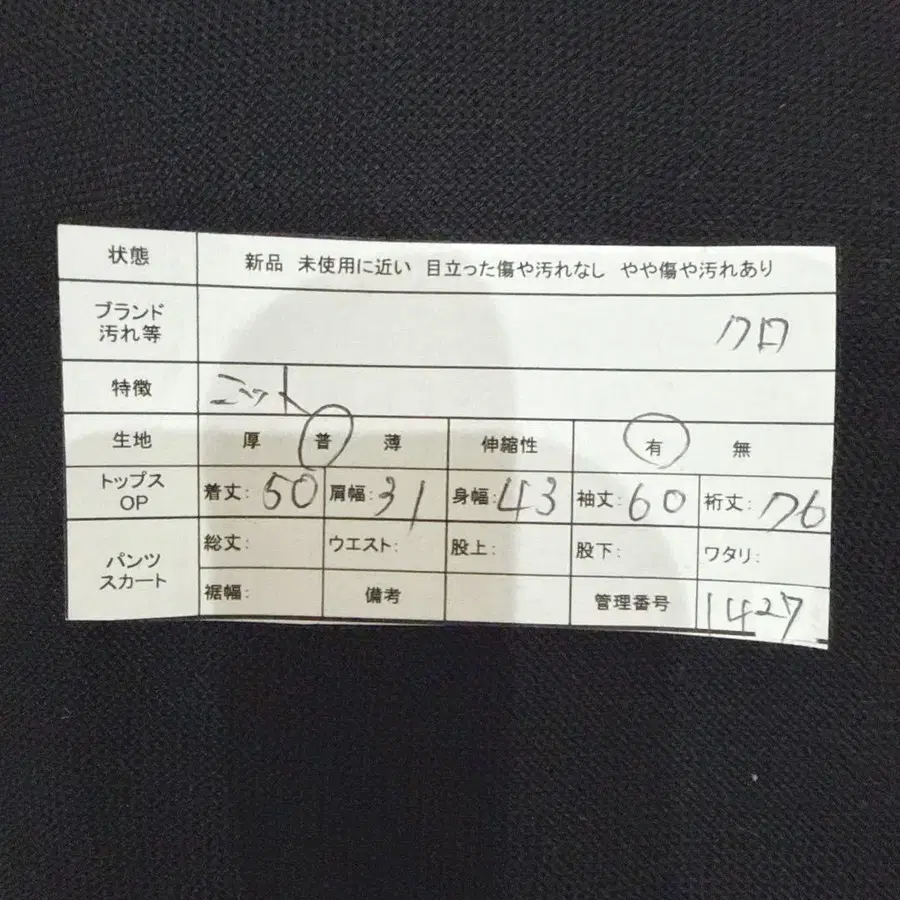 状態 新品 未使用に近い 目立った傷や汚れなし やや傷や汚れあり
ブランド
汚れ等 クロ
特徴 ニット
生地 厚 普 薄 伸縮性 有 無
トップス
OP 着丈: 50 肩幅: 31 身幅: 43 袖丈: 60 裄丈: 76
パンツ
スカート 総丈: ウエスト: 股上: 股下: ワタリ:
裾幅: 備考 管理番号 1427